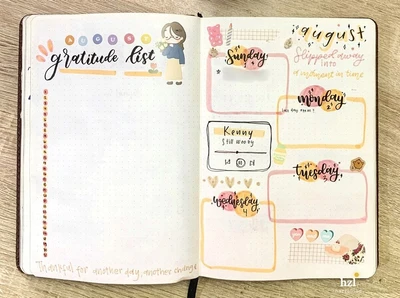 AUGUST
gratitude list
Thankful for another day, another change
august
Slipped away
INTO
a moment in time
Sunday
1
monday
2
last day mood!
Kenny
Still Woozy
tuesday
3
wednesday
4
hzl